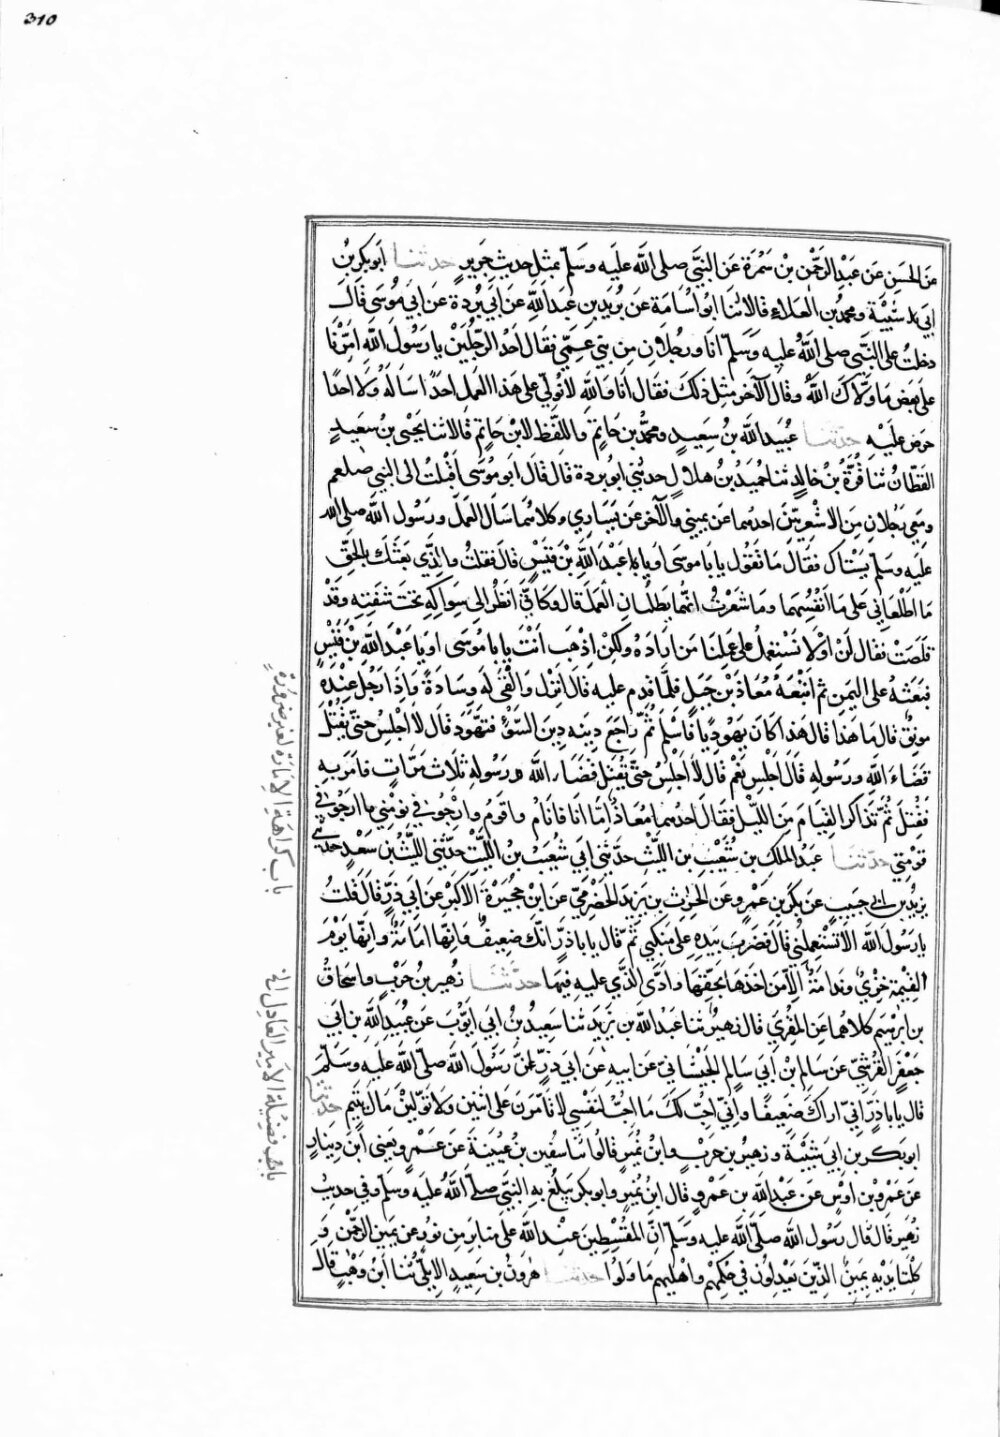 310
عن الحسن عن عبد الرحمن بن سمرة عن النبي صلى الله عليه وسلم بمثل حديث جرير حدثنا ابو بكر بن
ابي شيبة ومحمد بن العلاء قالا ثنا ابو اسامة عن بريد بن عبد الله عن ابي بردة عن ابي موسى قال
دخلت على النبي صلى الله عليه وسلم انا ورجلان من بني عمي فقال احد الرجلين يا رسول الله امرنا
على بعض ما ولاك الله وقال الآخر مثل ذلك فقال انا والله لا نولي على هذا العمل احدا ساله ولا احدا
حرص عليه حدثنا عبيد الله بن سعيد ومحمد بن حاتم واللفظ لابن حاتم قالا ثنا يحيى بن سعيد
القطان ثنا قرة بن خالد ثنا حميد بن هلال حدثني ابو بردة قال قال ابو موسى اقبلت الى النبي صلعم
ومعي رجلان من الاشعريين احدهما عن يميني والآخر عن يساري وكلاهما سال العمل ورسول الله صلى الله
عليه وسلم يستاك فقال ما تقول يا با موسى او يا عبد الله بن قيس قال فقلت والذي بعثك بالحق
ما اطلعاني على ما انفسهما وما شعرت انهما يطلبان العمل قال وكاني انظر الى سواكه تحت شفته وقد
قلصت فقال لن او لا نستعمل على عملنا من اراده ولكن اذهب انت يا با موسى او يا عبد الله بن قيس
فبعثه على اليمن ثم اتبعه معاذ بن جبل فلما قدم عليه قال انزل والقى له وسادة واذا رجل عنده
موثق قال ما هذا قال هذا كان يهوديا فاسلم ثم راجع دينه دين السوء فتهود قال لا اجلس حتى يقتل
قضاء الله ورسوله قال اجلس نعم قال لا اجلس حتى يقتل قضاء الله ورسوله ثلاث مرات فامر به
فقتل ثم تذاكرا القيام من الليل فقال احدهما معاذ اما انا فانام واقوم وارجو في نومتي ما ارجو في
قومتي حدثنا عبد الملك بن شعيب بن الليث حدثني ابي شعيب بن الليث حدثني الليث بن سعد حدثني
يزيد بن ابي حبيب عن بكر بن عمرو عن الحرث بن يزيد الحضرمي عن ابن حجيرة الاكبر عن ابي ذر قال قلت
يا رسول الله الا تستعملني قال فضرب بيده على منكبي ثم قال يا با ذر انك ضعيف وانها امانة وانها يوم
القيمة خزي وندامة الا من اخذها بحقها وادى الذي عليه فيها حدثنا زهير بن حرب واسحاق
بن ابرهيم كلاهما عن المقري قال زهير ثنا عبد الله بن يزيد ثنا سعيد بن ابي ايوب عن عبيد الله بن ابي
جعفر القرشي عن سالم بن ابي سالم الجيشاني عن ابيه عن ابي ذر ان رسول الله صلى الله عليه وسلم
قال يا با ذر اني اراك ضعيفا واني احب لك ما احب لنفسي لا تامرن على اثنين ولا تولين مال يتيم حدثنا
ابو بكر بن ابي شيبة وزهير بن حرب وابن نمير قالوا ثنا سفين بن عيينة عن عمرو يعني ابن دينار
عن عمرو بن اوس عن عبد الله بن عمرو قال ابن نمير وابو بكر يبلغ به النبي صلى الله عليه وسلم وفي حديث
زهير قال قال رسول الله صلى الله عليه وسلم ان المقسطين عند الله على منابر من نور عن يمين الرحمن و
كلتا يديه يمين الذين يعدلون في حكمهم واهليهم ما ولوا حدثنا هرون بن سعيد الايلي ثنا ابن وهب قال
باب كراهة الامارة لغير ضرورة
باب فضيلة الامير العادل الخ